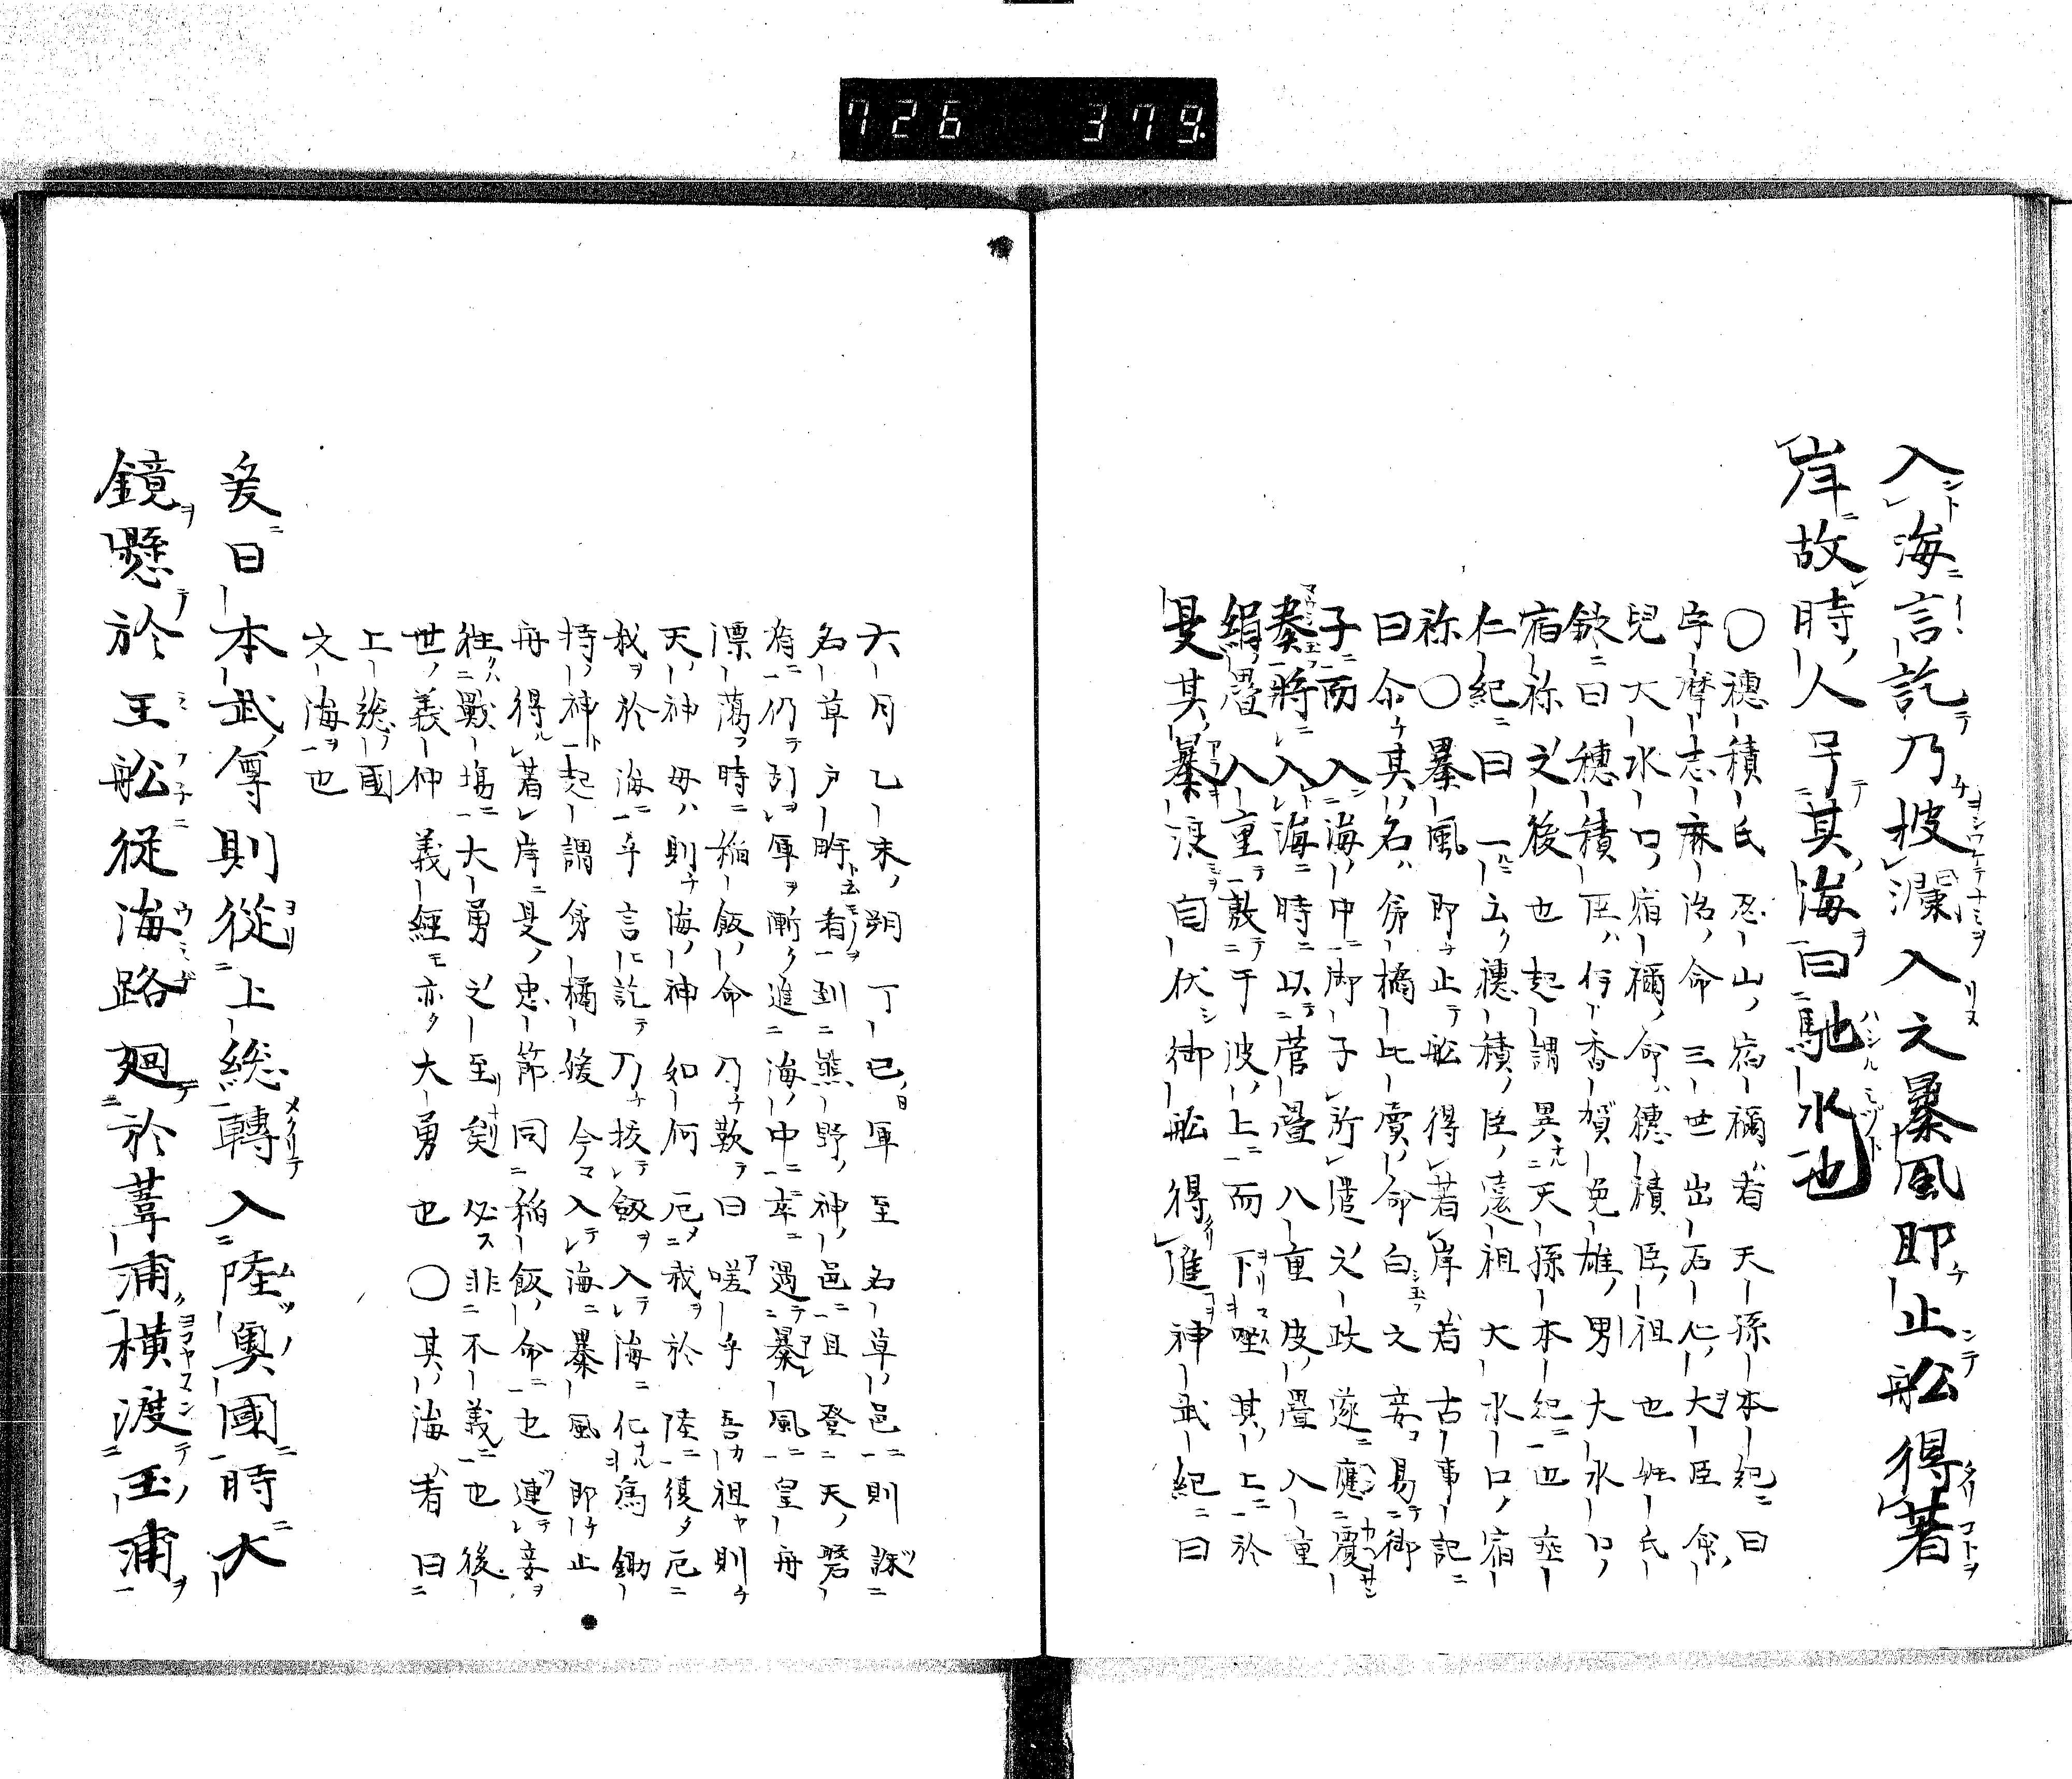 726 379.
入海言訖乃披瀾入之暴風即止舩得著
岸故時人号其海曰馳水也
〇穂積氏忍山宿禰者天孫本紀曰
宇摩志麻治命三世出石心大臣命
兒大水口宿禰命穂積臣祖也姓氏
録曰穂積臣伊香賀色雄男大水口
宿祢之後也起謂異天孫本紀也垂
仁紀曰一云穂積臣遠祖大水口宿
祢〇暴風即止舩得著岸者古事記
曰令其名弟橘比賣命白之妾易御
子而入海中御子所遣之政遂應覆
奏將入海時以菅疊八重皮疊八重
絹疊八重敷于波上而下坐其上於
是其暴浪自伏御舩得進神武紀曰
六月乙未朔丁巳軍至名草邑則誅
名草戸畔者到熊野神邑且登天磐
仍引軍漸進海中卒遇暴風皇舟
漂蕩時稲飯命乃歎曰嗟乎吾祖則
天神母則海神如何厄我於陸復厄
我於海乎言訖乃拔釼入海化為鋤
持神起謂弟橘媛今入海暴風即止
舟得著岸是忠節同稲飯命也連妾
往戰場大勇之至矣必非不義也後
世義仲義經亦大勇也〇其海者曰
上総國
文海也
爰日本武尊則從上総轉入陸奥國時大
鏡懸於王舩従海路廻於葦浦横渡玉浦